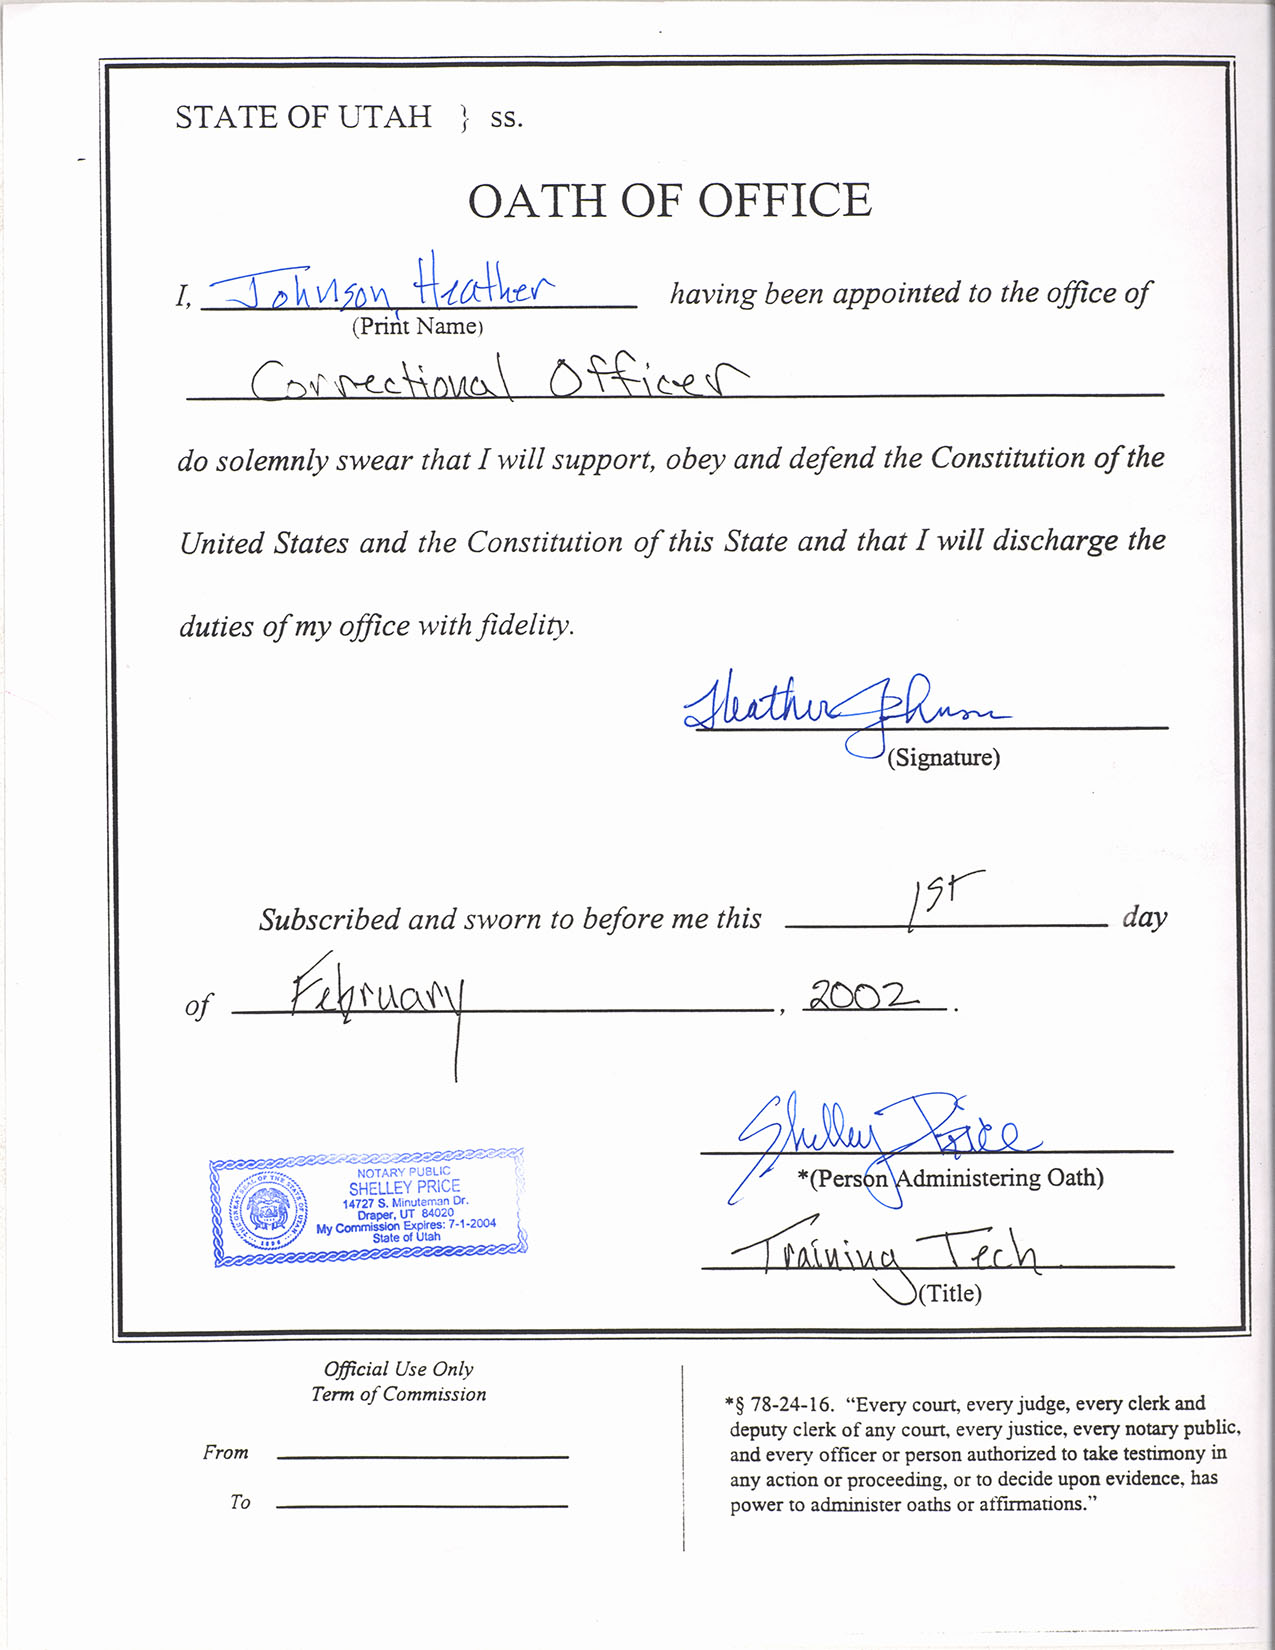 STATE OF UTAH } ss.
OATH OF OFFICE
I, Johnson, Heather having been appointed to the office of
(Print Name)
Correctional Officer
do solemnly swear that I will support, obey and defend the Constitution of the
United States and the Constitution of this State and that I will discharge the
duties of my office with fidelity.
Heather Johnson
(Signature)
Subscribed and sworn to before me this 1st day
of February, 2002.
Shelley Price
*(Person Administering Oath)
Training Tech
(Title)
NOTARY PUBLIC
SHELLEY PRICE
14727 S. Minuteman Dr.
Draper, UT 84020
My Commission Expires: 7-1-2004
State of Utah
THE GREAT SEAL OF THE STATE OF UTAH
1896
Official Use Only
Term of Commission
From
To
*§ 78-24-16. “Every court, every judge, every clerk and
deputy clerk of any court, every justice, every notary public,
and every officer or person authorized to take testimony in
any action or proceeding, or to decide upon evidence, has
power to administer oaths or affirmations.”